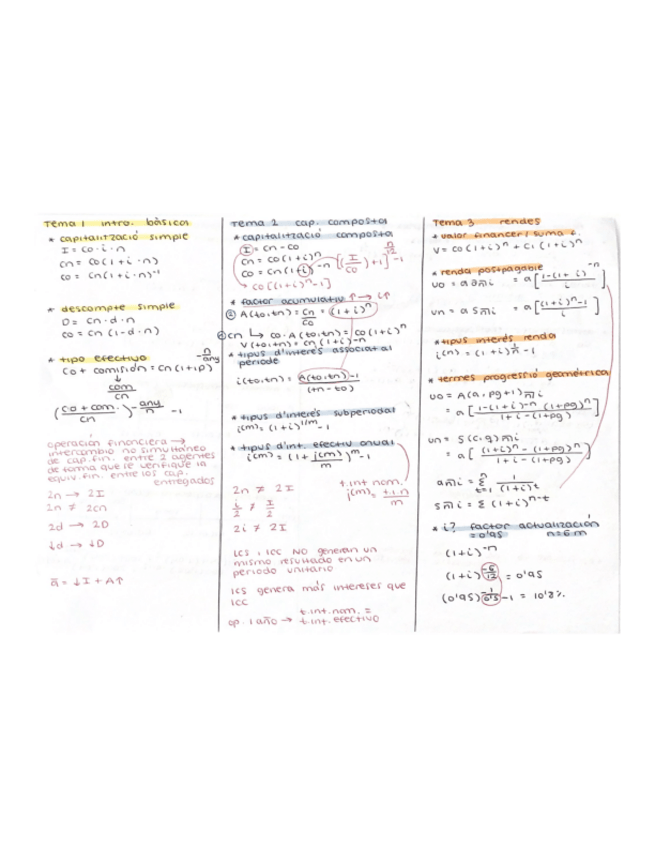 Tema 1 intro. bàsica
* capitalització simple
I = Co · i · n
Cn = Co (1 + i · n)
Co = Cn (1 + i · n)⁻¹
* descompte simple
D = Cn · d · n
Co = Cn (1 - d · n)
* tipo efectivo
Co + comisión = Cn (1+p)^(-n/any)
↓
com/Cn
((Co + com.)/Cn)^(-any/n) - 1
operación financiera →
intercambio no simultáneo
de cap. fin. entre 2 agentes
de forma que se verifique la
equiv. fin. entre los cap.
entregados
2n → 2I
2n ≠ 2Cn
2d → 2D
↓d → ↓D
ā = ↓I + A↑
Tema 2 cap. composta
* capitalització composta
I = Cn - Co
Cn = Co (1 + i)ⁿ
Co = Cn (1 + i)⁻ⁿ
Co [(1+i)ⁿ - 1]
* factor acumulatiu ↑ → i↑
② A(to,tn) = Cn/Co = (1+i)ⁿ
Cn ↳ Co · A(to,tn) = Co (1+i)ⁿ
V(to,tn) = Cn (1+i)⁻ⁿ
* tipus d'interès associat al
període
i(to,tn) = (A(to,tn) - 1)/(tn - to)
* tipus d'interès subperiodal
i(m) = (1+i)^(1/m) - 1
* tipus d'int. efectiu anual
i(m) = (1 + j(m)/m)^m - 1
t. int nom.
j(m) = t.i.n/m
2n ≠ 2I
i/2 ≠ I/2
2i ≠ 2I
LCS i LCC NO generan un
mismo resultado en un
periodo unitario
LCS genera más intereses que
LCC
op. 1 año → t. int. nom. =
t. int. efectivo
Tema 3 rendes
* valor financer / suma f.
V = Co (1+i)ⁿ + C1 (1+i)ⁿ
* renda postpagable
Vo = a a n̅|i = a [(1 - (1+i)⁻ⁿ)/i]
Vn = a S n̅|i = a [((1+i)ⁿ - 1)/i]
* tipus interès renda
i(n) = (1+i)^(1/n) - 1
* termes progressió geomètrica
Vo = A(a, pg+1) n̅|i
= a [(1 - (1+i)⁻ⁿ (1+pg)ⁿ)/(1 + i - (1+pg))]
Vn = S(c, g) n̅|i
= a [((1+i)ⁿ - (1+pg)ⁿ)/(1 + i - (1+pg))]
a n̅|i = Σ_(t=1)^n 1/(1+i)^t
S n̅|i = Σ (1+i)^(n-t)
* i? factor actualización
= 0'95 n = 6 m
(1+i)⁻ⁿ
(1+i)^(-6/12) = 0'95
(0'95)^(-1/0'5) - 1 = 10'8%